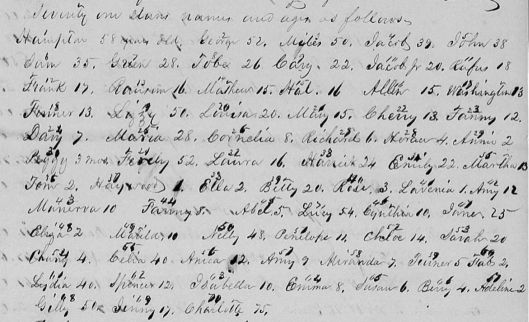 Seventy one slaves names and ages as follows
Hampton 58 years old. George 52. Miles 50. Jacob 39. John 38
Sam 35. Green 28. Tobe 26. Cary. 22. Jacob Jr 20. Rufus 18
Frank 17. Ransom 16. Mathew 15. Hal. 16 Allen 15. Washington 13
Turner 13. Lizzy 50. Louisa 20. Mary 15. Cherry 13. Fanny 12.
Davy 7. Maria 28. Cornelia 8. Richard 6. Horace 4. Annie 2
Peggy 3 mos. Ferely 52. Laura 16. Harriet 24 Emily 22. Martha 13
Tom 2. Haywood 1. Ella 2. Betty 20. Rose. 3. Lavenia 1. Amy 12
Manerva 10 Fanny 8. Abel. 5. Lucy 54. Cynthia 10. Jane. 25
Eliza 2 Matilda 10 Nelly 48. Penelope 11. Chloe 14. Sarah 20
Chany 4. Celia 40. Anica 12. Amy 9 Miranda 7. Turner 5 Hal 2.
Lydia 40. Spencer 12. Isabella 10. Emma 8. Susan 6. Berry 4. Adeline 2
Gilly 50. Jenny 17. Charlotte 75.